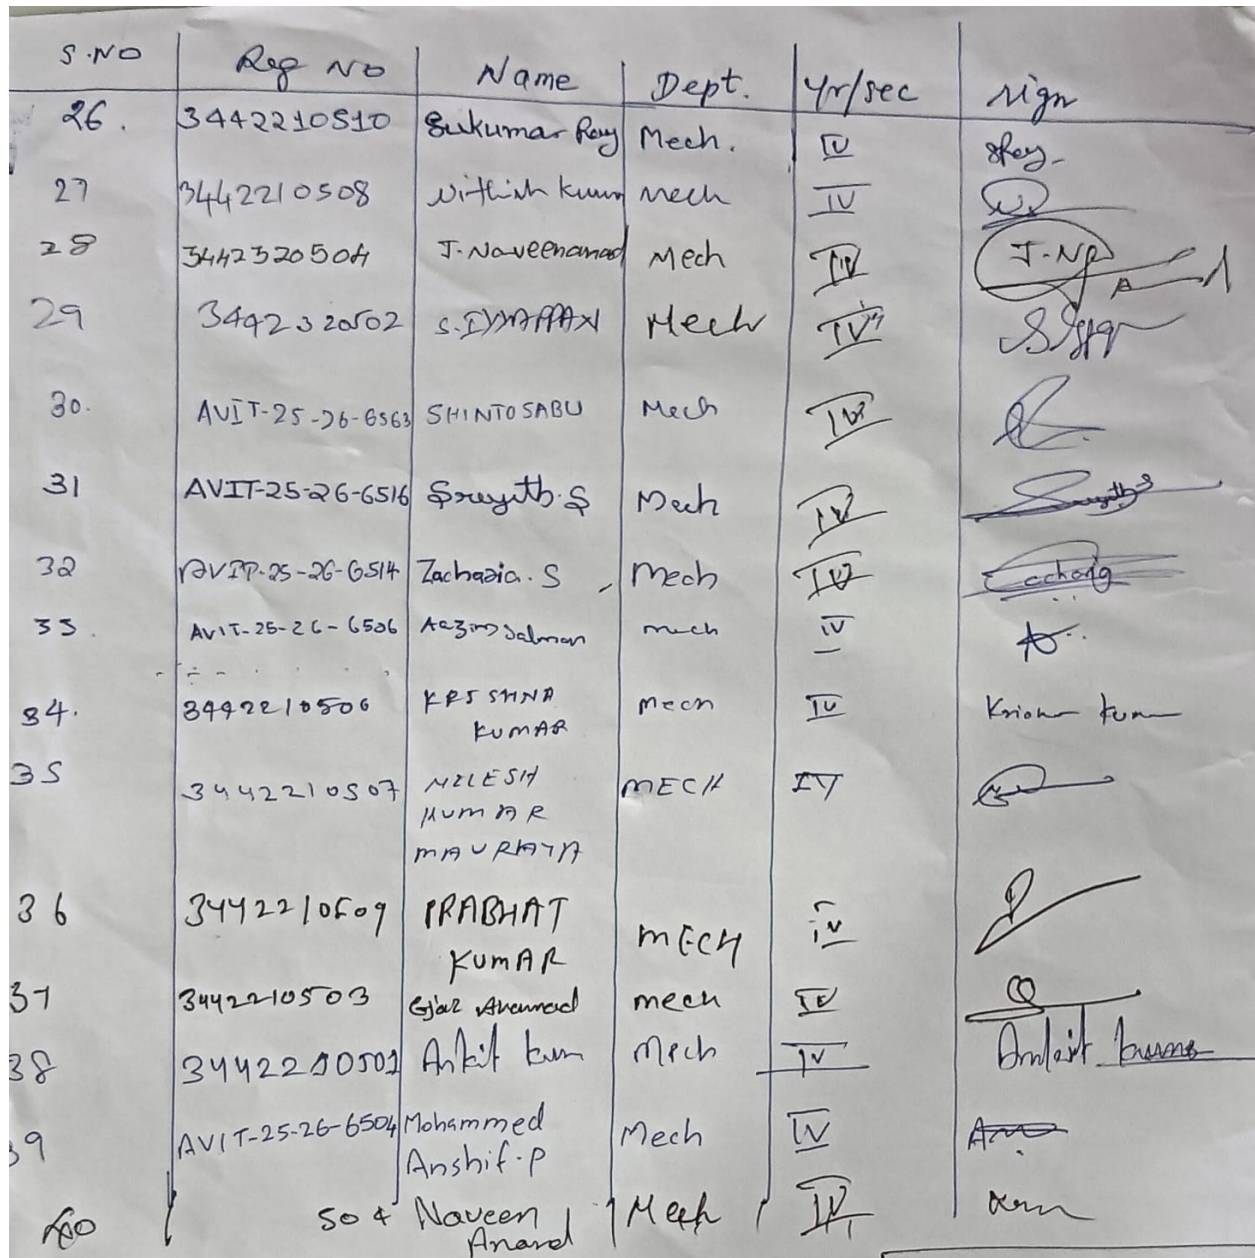 S.NO Reg NO Name Dept. Yr/sec sign
26. 3442210510 Sukumar Roy Mech. IV SRoy-
27 3442210508 Nithish Kum Mech IV
28 3442320504 J. Naveenanad Mech IV J.N
29 3442320502 S. IYYAPPAN Mech IV
30. AVIT-25-26-6563 SHINTO SABU Mech IV
31 AVIT-25-26-6516 Sreyith.S Mech IV
32 AVIT-25-26-6514 Zacharia.S Mech IV
33. AVIT-25-26-6506 Aazim Salman mech IV
34. 3442210506 KRISHNA Mech IV
KUMAR
35 3442210507 NILESH MECH IV
KUMAR
MAURAYA
36 3442210509 PRABHAT MECH iv
KUMAR
37 3442210503 Ejaz Ahamad mech IV
38 3442210501 Ankit kum Mech IV
39 AVIT-25-26-6504 Mohammed Mech IV
Anshif.P
40 504 Naveen Mech IV
Anand